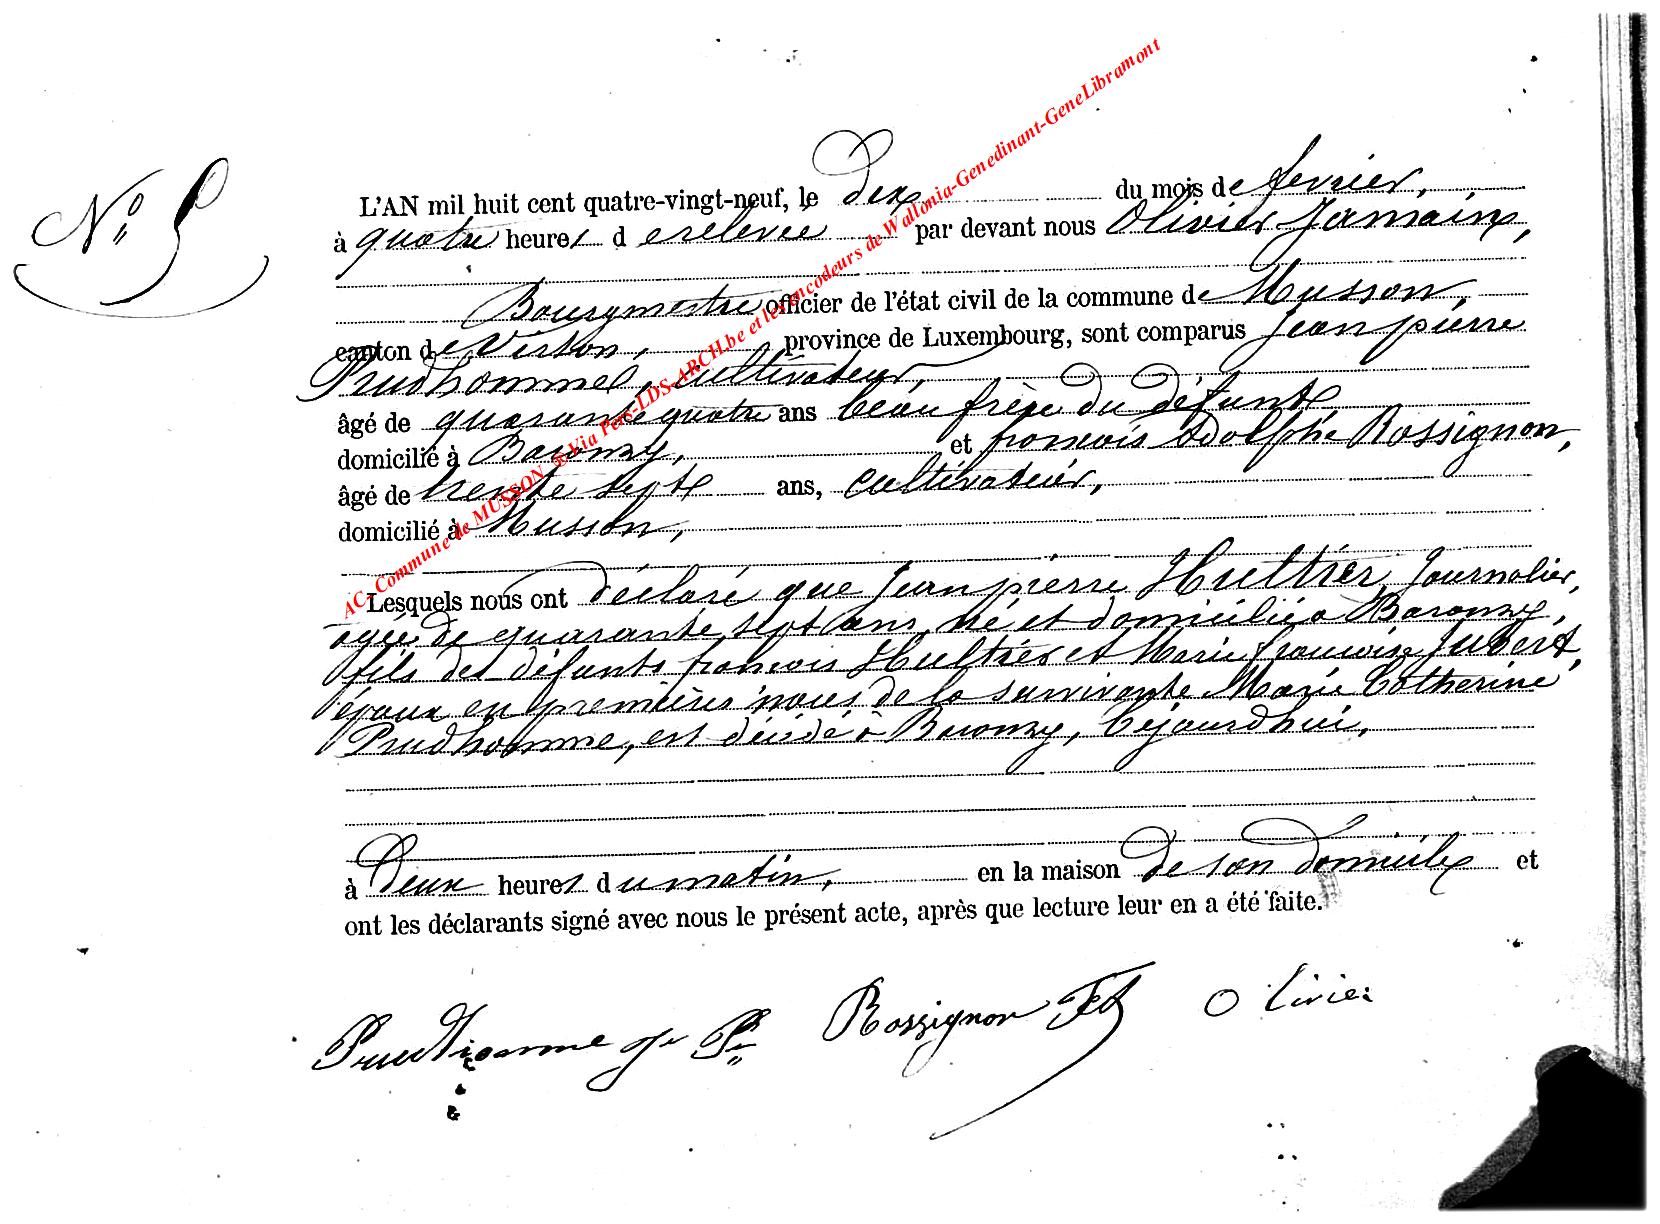 N° 5
L'AN mil huit cent quatre-vingt-neuf, le dix du mois de fevrier,
à quatre heures d erelevée par devant nous Olivier Jamain,
Bourgmestre officier de l'état civil de la commune de Musson,
canton de Virton, province de Luxembourg, sont comparus Jean pierre
Prudhomme, cultivateur,
âgé de quarante quatre ans beau frère du défunt
domicilié à Baronzy, et francois adolphe Rossignon,
âgé de trente sept ans, cultivateur,
domicilié à Musson,
Lesquels nous ont déclaré que Jean pierre Hultier, Journalier,
agée de quarante sept ans, né et domicilié a Baronzy,
fils des défunts francois Hultier et Marie francoise Jubert,
époux en premières noces de la survivante Marie Catherine
Prudhomme, est décédé à Baronzy, Cejourdhui,
à Deux heures du matin, en la maison de son domicile et
ont les déclarants signé avec nous le présent acte, après que lecture leur en a été faite.
Prudhomme J P
Rossignon
Olivier
AC- Commune de MUSSON ®Via Pers-LDS-ARCH.be et les encodeurs de Wallonia-Genedinant-GeneLibramont